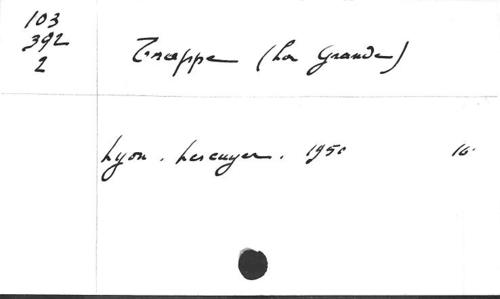 103
392
2
Trappe (La Grande)
Lyon. Lescuyer. 1950 16